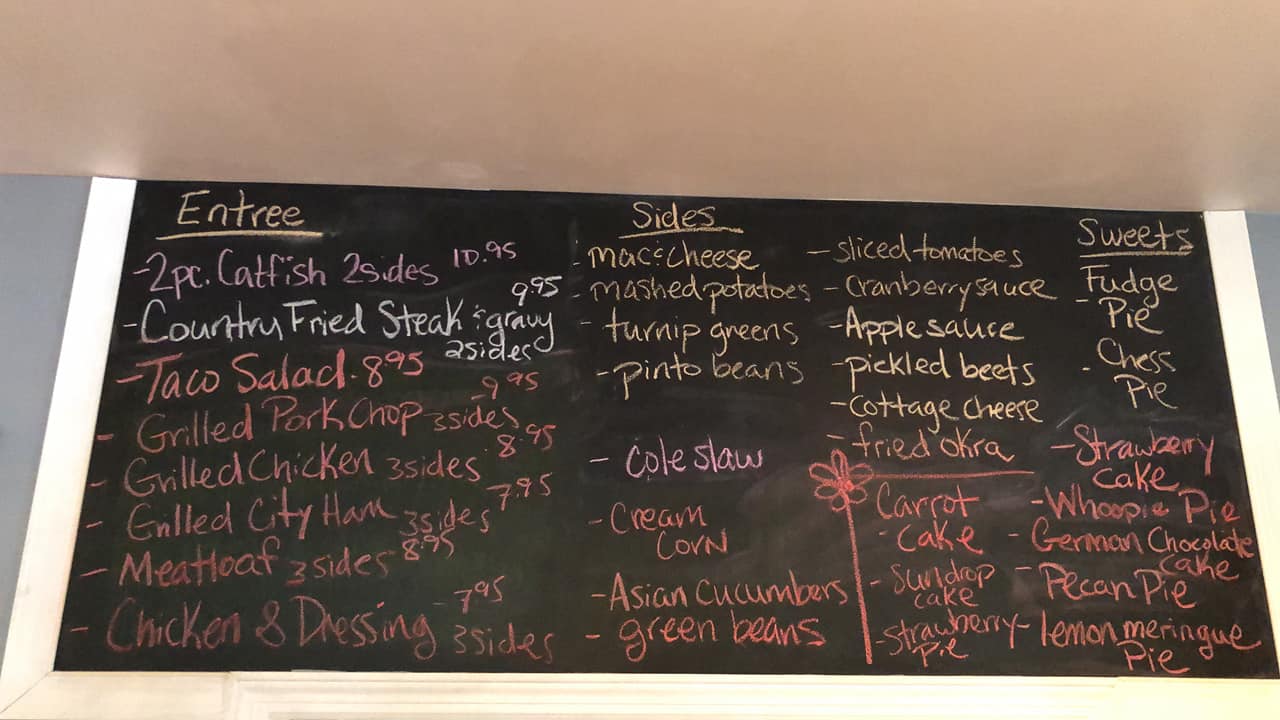 Entree
-2pc. Catfish 2sides 10.95
-Country Fried Steak & gravy 9.95
2sides
-Taco Salad. 8.95
- Grilled Pork Chop 3sides -9.95
- Grilled Chicken 3sides 8.95
- Grilled City Ham 3sides 7.95
- Meatloaf 3sides 8.95
- Chicken & Dressing 3sides -7.95
Sides
- mac & cheese
- mashed potatoes
- turnip greens
- pinto beans
- Cole slaw
- Cream
Corn
- Asian Cucumbers
- green beans
- sliced tomatoes
- Cranberry sauce
- Apple sauce
- pickled beets
- Cottage Cheese
- fried okra
Sweets
Fudge
- Pie
- Chess
Pie
- Strawberry
Cake
- Whoopie Pie
- German Chocolate
Cake
- Pecan Pie
- lemon meringue
Pie
Carrot
- Cake
- Sundrop
cake
- Strawberry
Pie